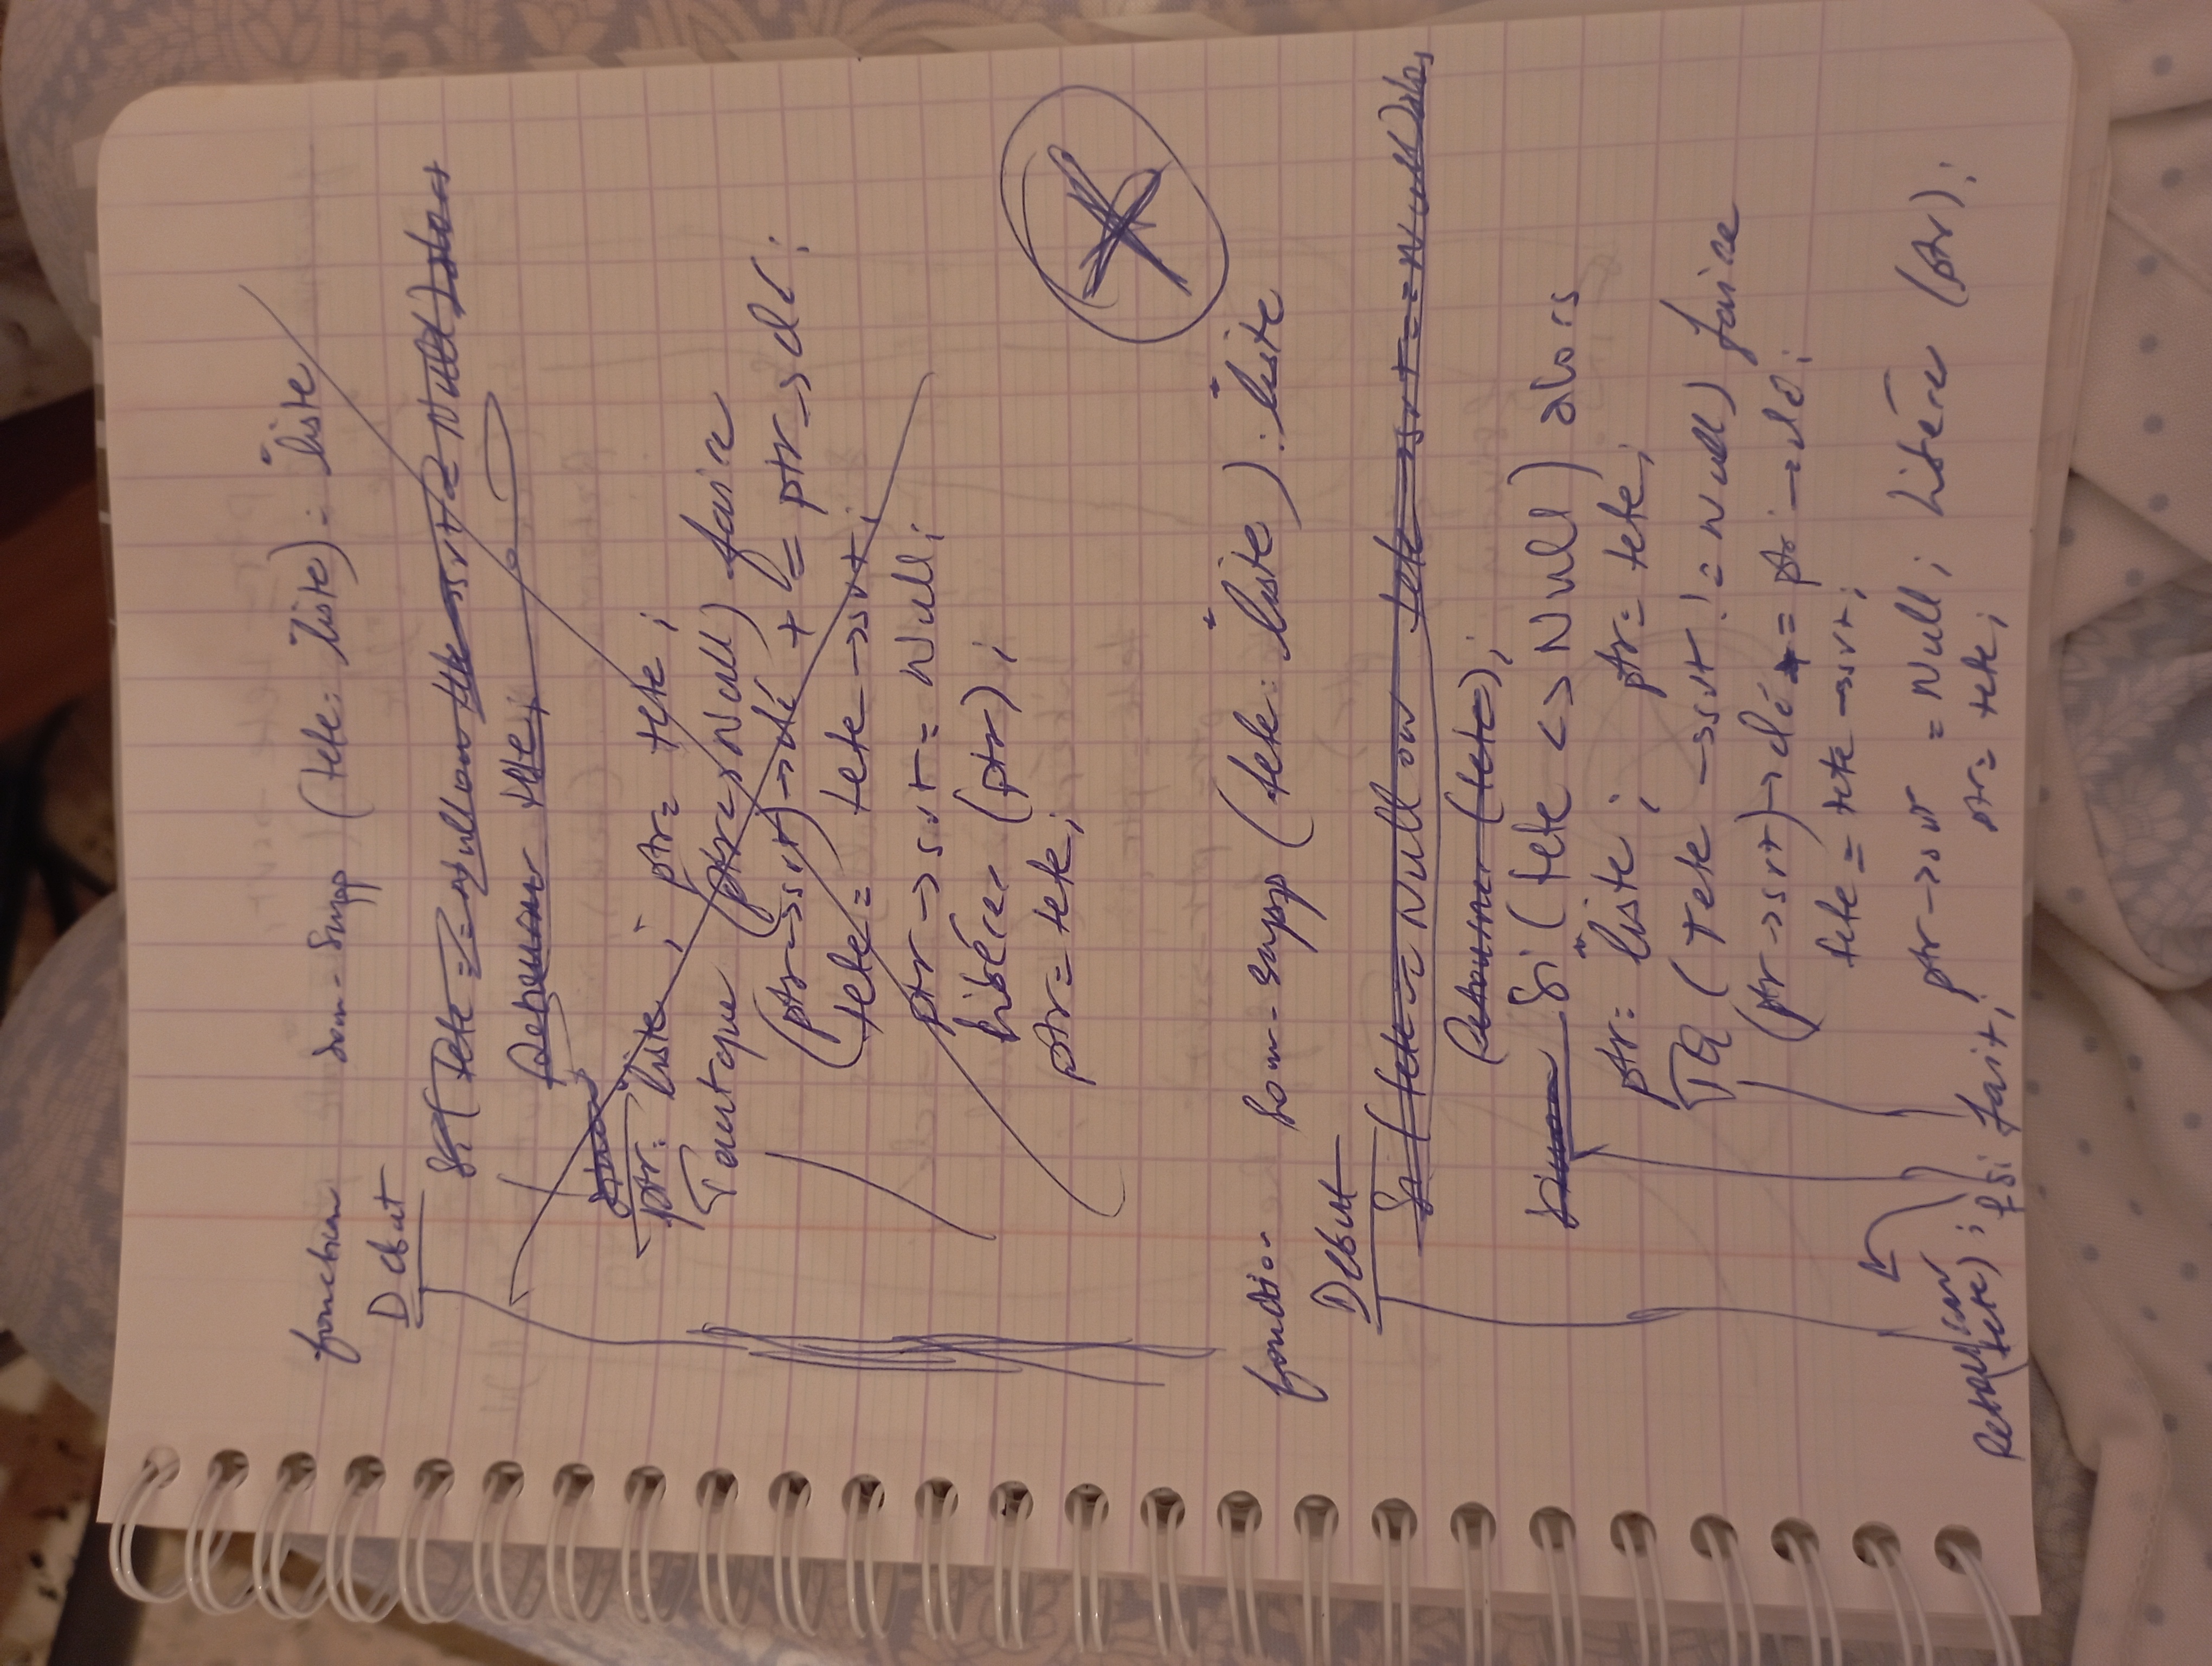 fonction Som-Supp (tete: liste): liste
Debut
Si (tete == null ou tete->svt = Null) alors
Retourner tete;
Sinon
ptr: liste; ptr = tete;
Tantque (ptr <> Null) faire
(ptr->svt)->clé += ptr->clé;
tete = tete->svt;
ptr->svt = Null;
libérer (ptr);
ptr = tete;
fonction Som-supp (tete: liste): liste
Debut
Si (tete == Null ou tete->svt == null) alors
Retourner (tete);
Sinon Si (tete <> Null) alors
ptr: liste; ptr = tete;
TQ (Tete->svt != null) faire
(ptr->svt)->clé += ptr->clé;
tete = tete->svt;
ptr->svt = Null; libérer (ptr);
ptr = tete;
Retourner (tete); fsi fait;